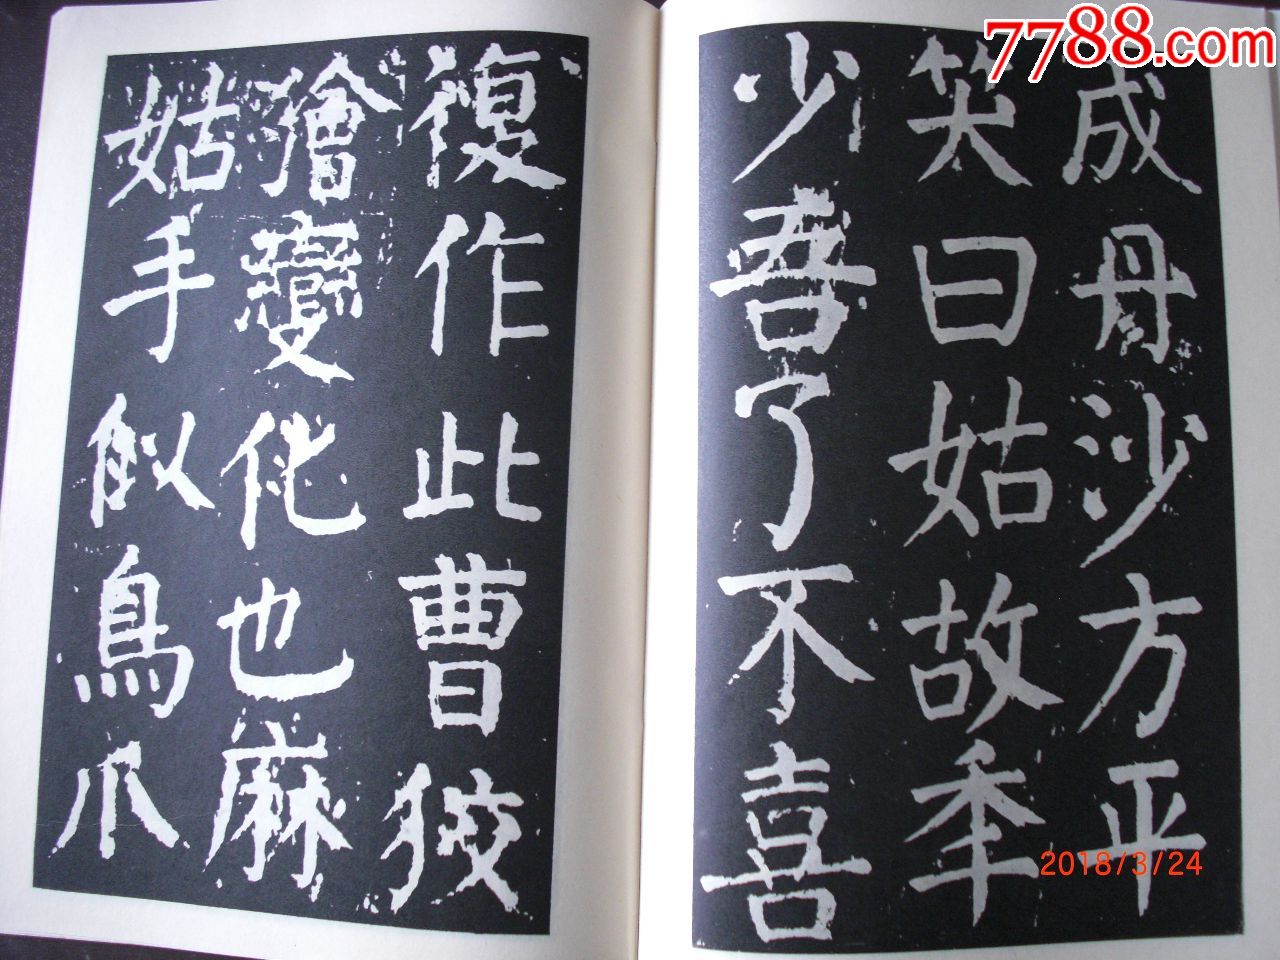 7788.com
成丹沙方平
笑曰姑故年
少吾了不喜
復作此曹狡
獪變化也麻
姑手似鳥爪
2018/3/24